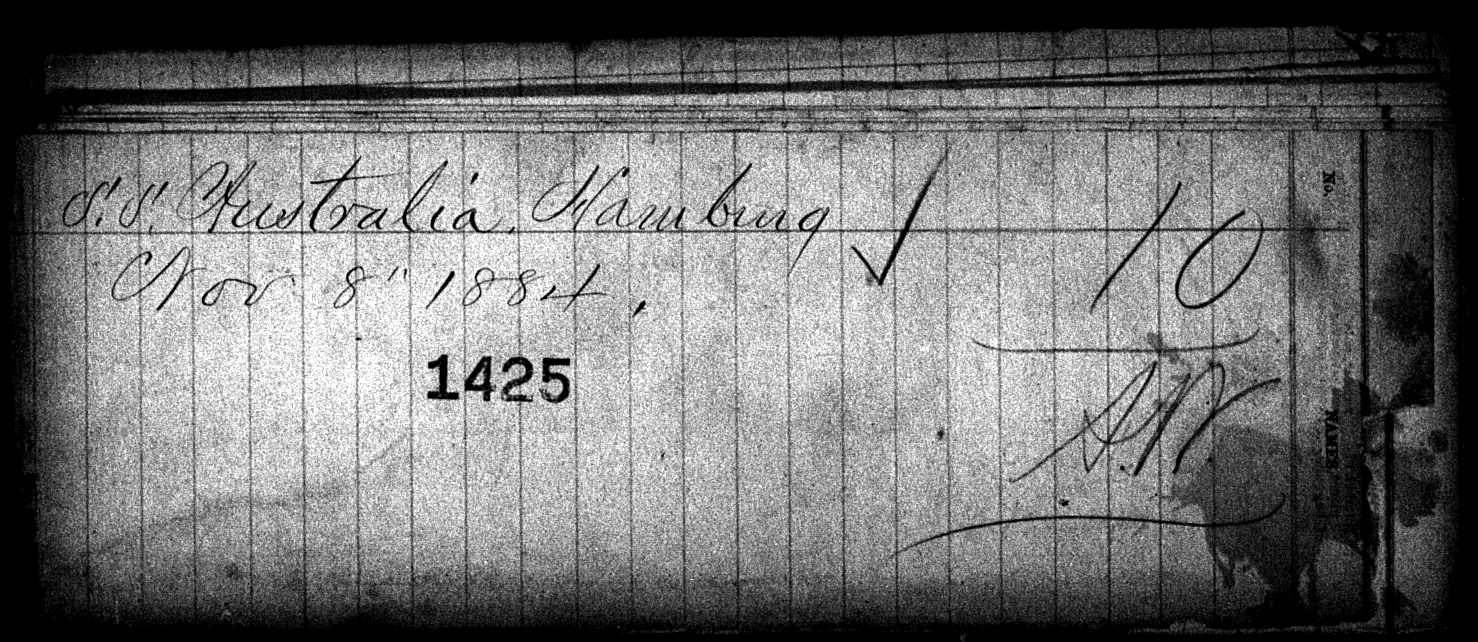 S.S. Australia. Hamburg ✓ 10
Nov 8" 1884.
1425
No.
NAMES